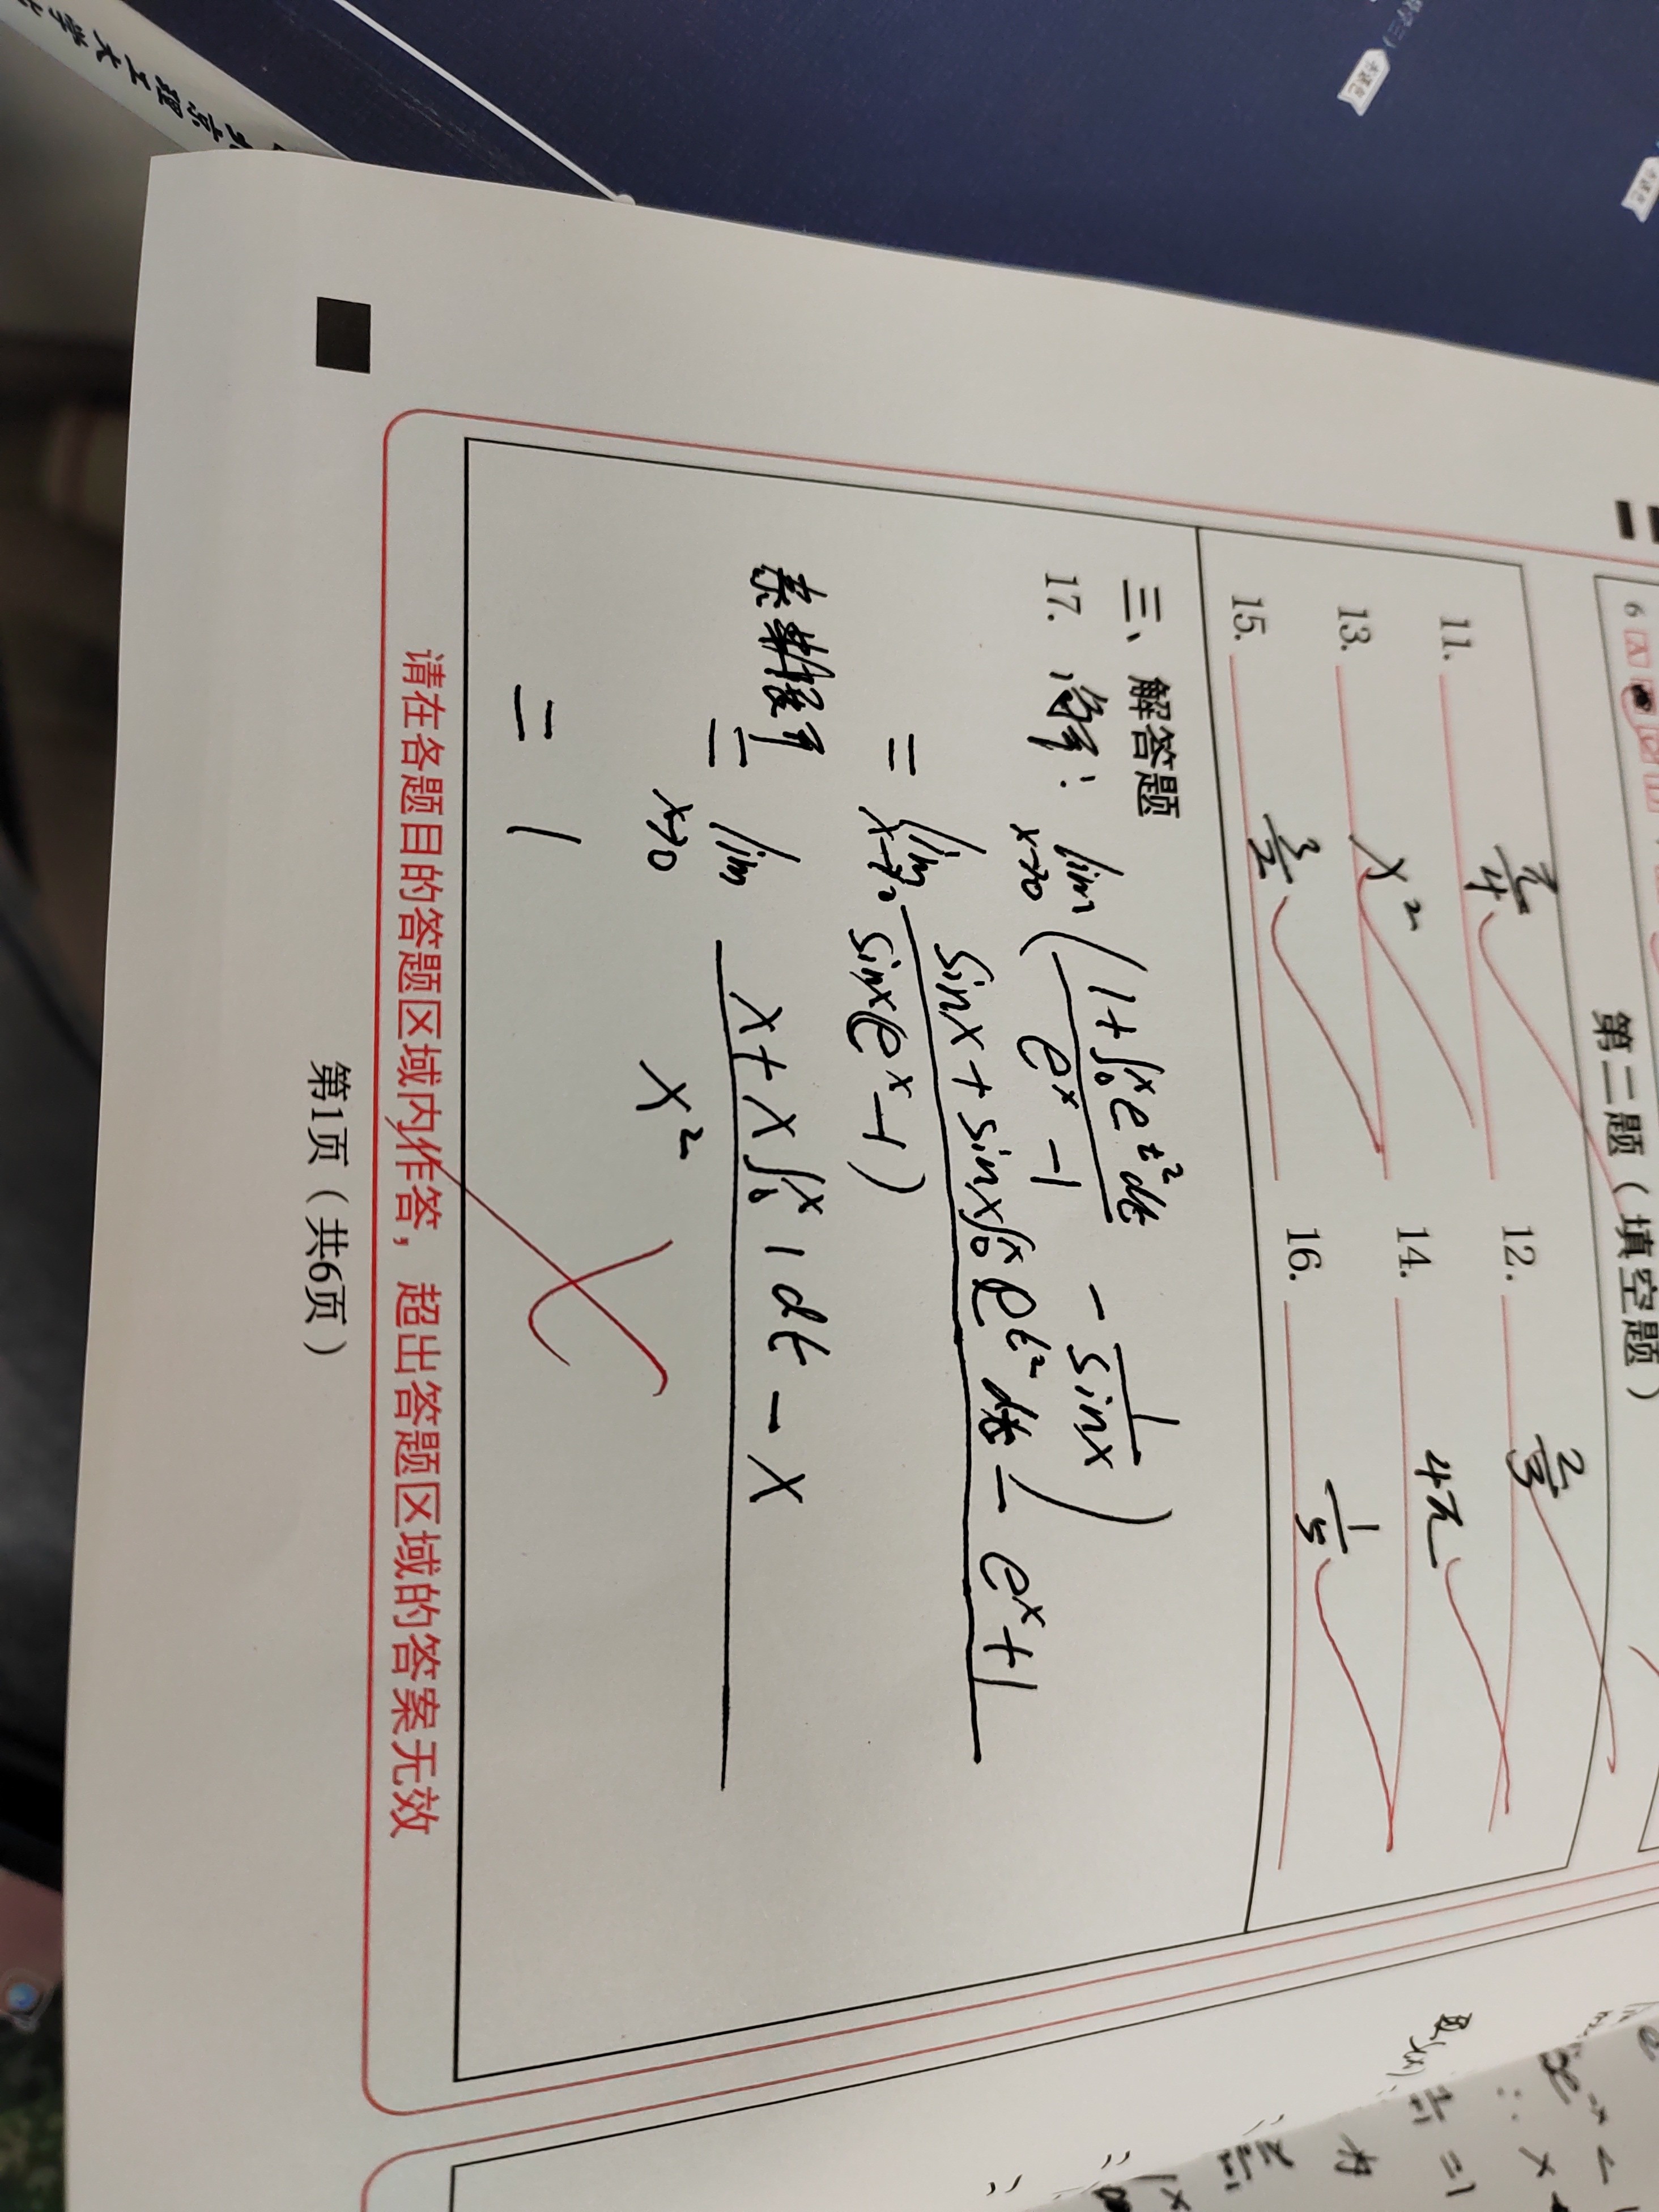 北京理工大学
第二题（填空题）
11. π/4
12. 2/3
13. x²
14. 4π
15. 3/2
16. 1/5
三、解答题
17. 解: lim x→0 ( (1+∫₀ˣ e^{t²}dt)/(eˣ-1) - 1/sinx )
= lim x→0 (sinx + sinx∫₀ˣ e^{t²}dt - eˣ+1)/(sinx(eˣ-1))
泰勒展开 = lim x→0 (x + x∫₀ˣ 1dt - x)/x²
= 1
请在各题目的答题区域内作答，超出答题区域的答案无效
第1页（共6页）